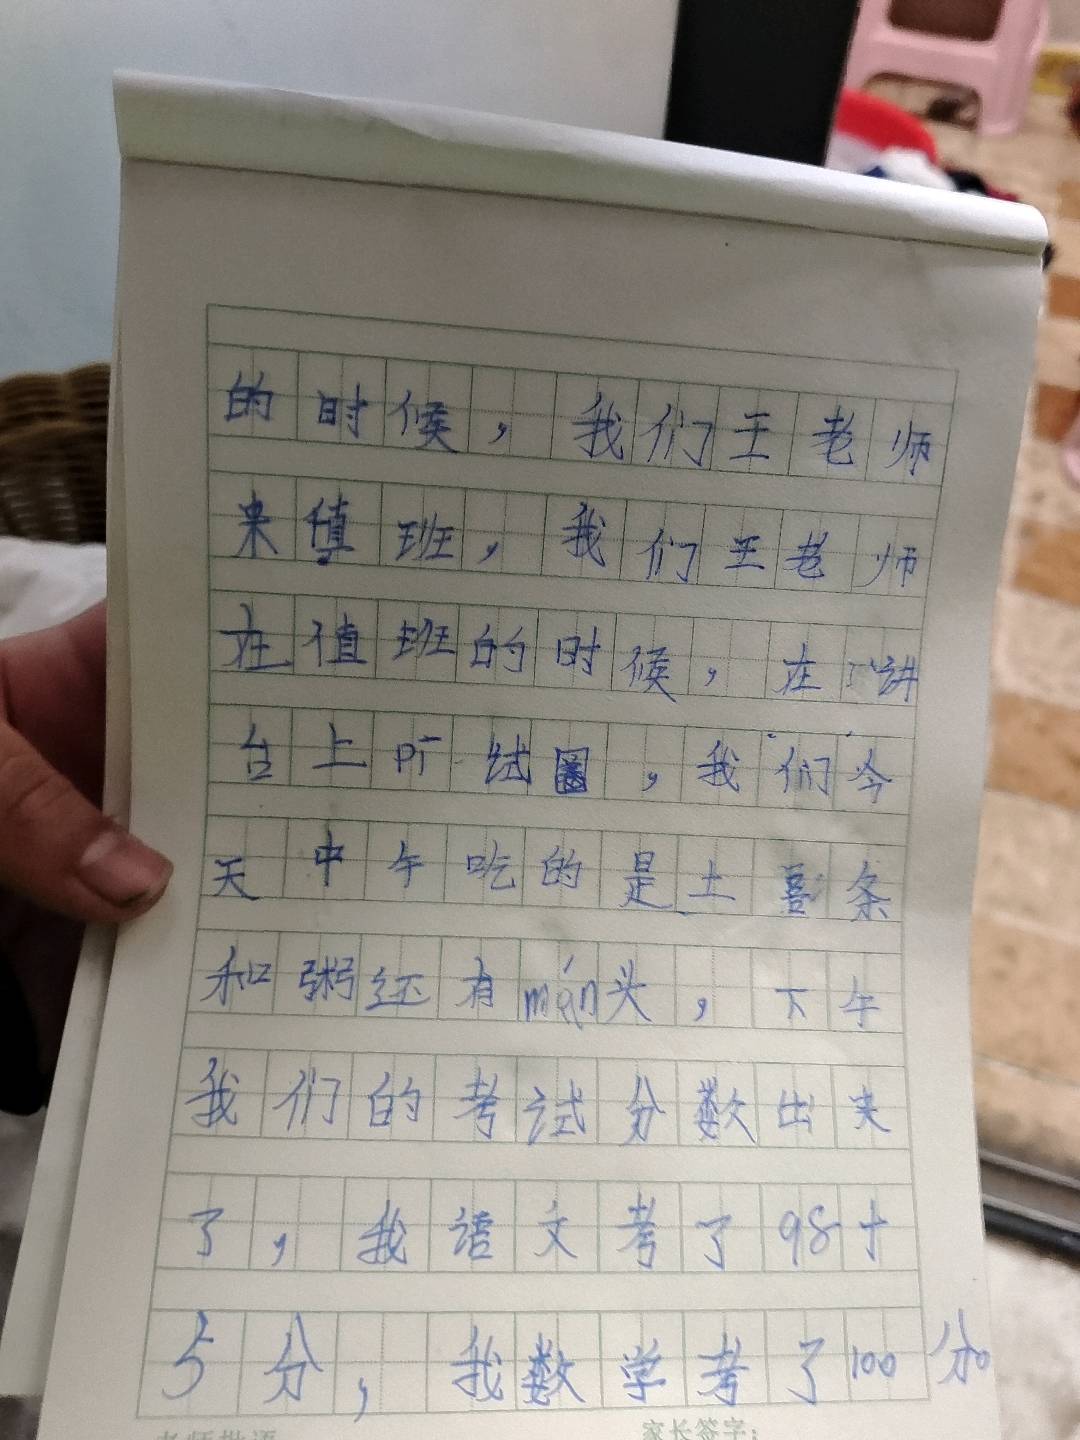 的时候，我们王老师
来值班，我们王老师
在值班的时候，在讲
台上pī试圈，我们今
天中午吃的是土豆条
和粥还有mán头，下午
我们的考试分数出来
了，我语文考了98十
5分，我数学考了100分。
老师批语
家长签字：